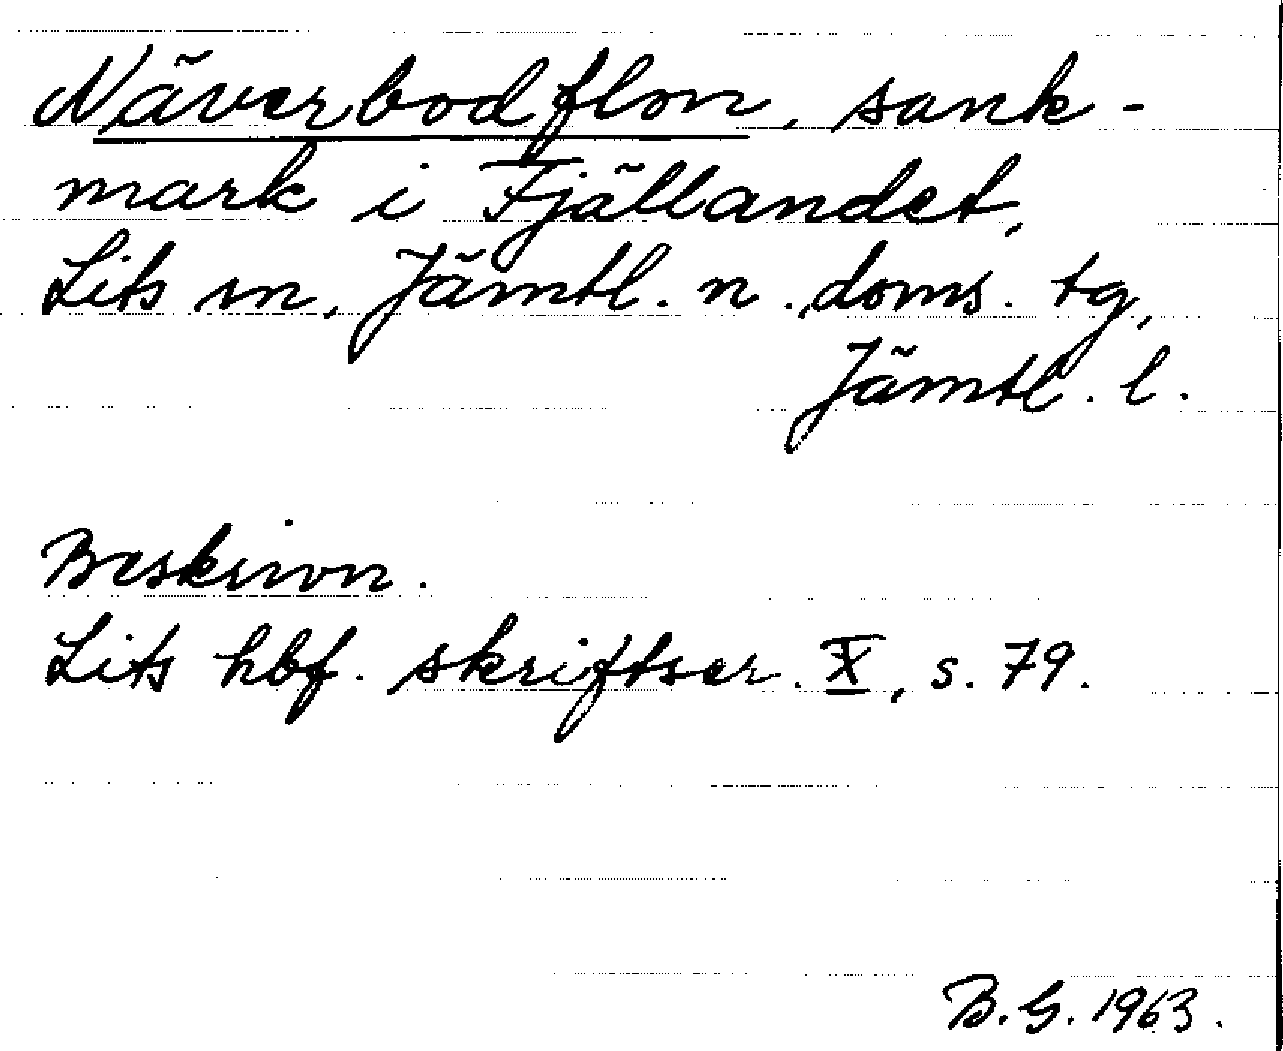 Näverbodflon, sank-
mark i Fjällandet,
Lits sn, Jämtl. n. doms. tg,
Jämtl. l.
Beskrivn.
Lits hbf. skriftser. X, s. 79.
B.G. 1963.